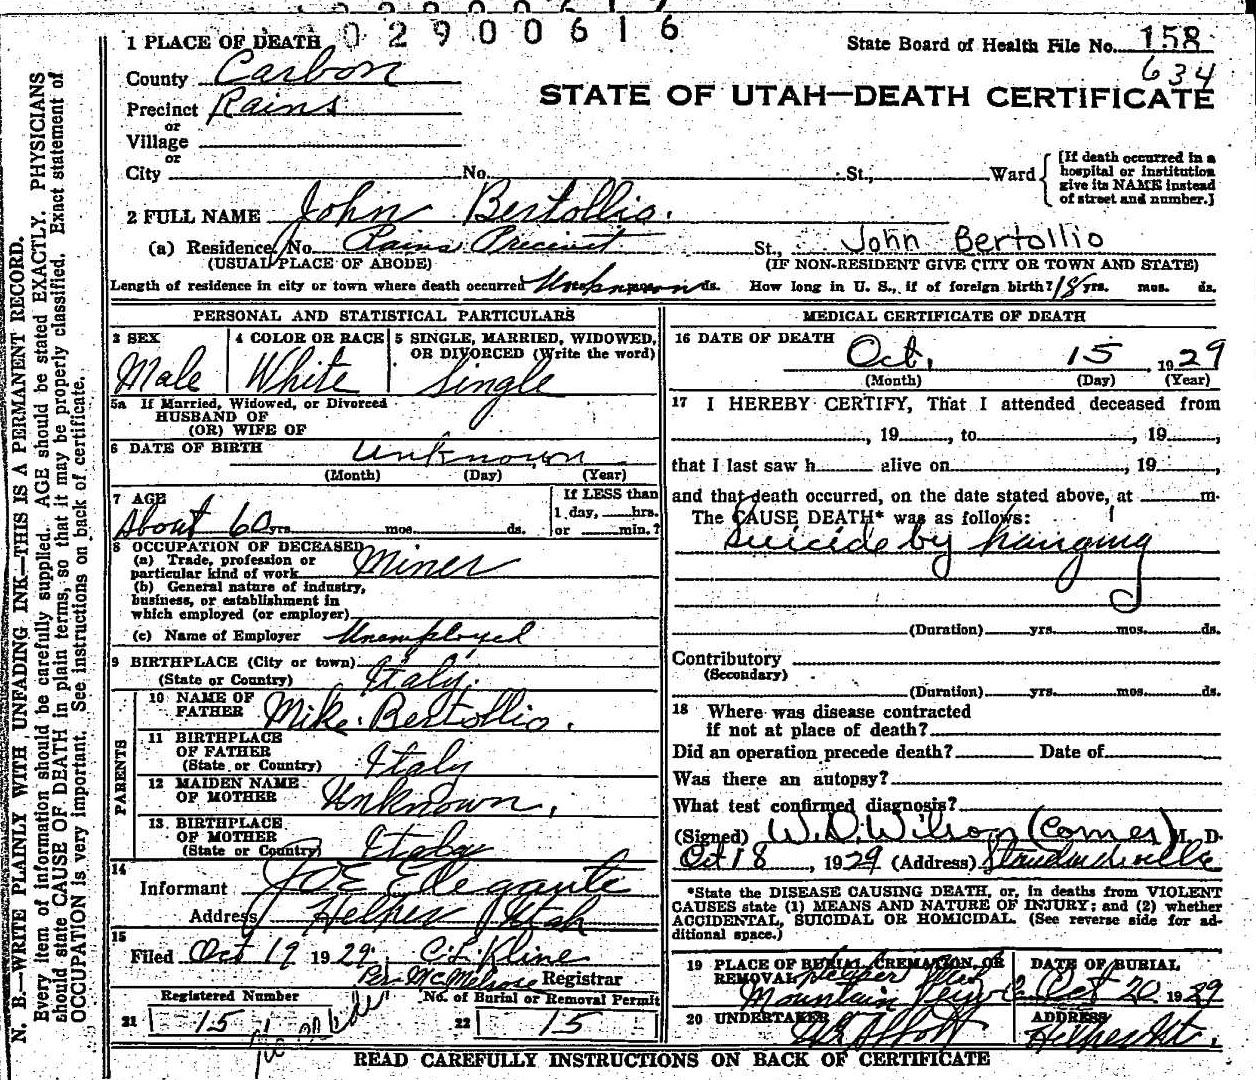 02900616
1 PLACE OF DEATH
State Board of Health File No. 158
634
County Carbon
STATE OF UTAH—DEATH CERTIFICATE
Precinct Rains
or
Village
or
City No. St., Ward
[If death occurred in a hospital or institution give its NAME instead of street and number.]
2 FULL NAME John Bertollio.
(a) Residence, No. Rains Precinct St., John Bertollio
(USUAL PLACE OF ABODE) (IF NON-RESIDENT GIVE CITY OR TOWN AND STATE)
Length of residence in city or town where death occurred Unknown ds. How long in U. S., if of foreign birth? 18 yrs. mos. ds.
PERSONAL AND STATISTICAL PARTICULARS
3 SEX
Male
4 COLOR OR RACE
White
5 SINGLE, MARRIED, WIDOWED, OR DIVORCED (Write the word)
Single
5a If Married, Widowed, or Divorced
HUSBAND OF
(OR) WIFE OF
6 DATE OF BIRTH Unknown
(Month) (Day) (Year)
7 AGE
About 60 yrs. mos. ds.
If LESS than
1 day, hrs.
or min.?
8 OCCUPATION OF DECEASED
(a) Trade, profession or
particular kind of work Miner
(b) General nature of industry,
business, or establishment in
which employed (or employer)
(c) Name of Employer Unemployed
9 BIRTHPLACE (City or town)
(State or Country) Italy.
PARENTS
10 NAME OF
FATHER Mike Bertollio.
11 BIRTHPLACE
OF FATHER
(State or Country) Italy
12 MAIDEN NAME
OF MOTHER Unknown,
13 BIRTHPLACE
OF MOTHER
(State or Country) Italy
14
Informant Joe Elegante
Address Helper Utah
15
Filed Oct 19 1929. C. L. Kline
Per McMelrose Registrar
Registered Number No. of Burial or Removal Permit
21 15 22 15
MEDICAL CERTIFICATE OF DEATH
16 DATE OF DEATH
Oct. 15, 1929
(Month) (Day) (Year)
17 I HEREBY CERTIFY, That I attended deceased from
, 19 , to , 19 ,
that I last saw h alive on , 19 ,
and that death occurred, on the date stated above, at m.
The CAUSE DEATH* was as follows:
Suicide by hanging
(Duration) yrs. mos. ds.
Contributory
(Secondary)
(Duration) yrs. mos. ds.
18 Where was disease contracted
if not at place of death?
Did an operation precede death? Date of
Was there an autopsy?
What test confirmed diagnosis?
(Signed) W. D. Wilson (Corner) M. D.
Oct 18, 1929 (Address)
*State the DISEASE CAUSING DEATH, or, in deaths from VIOLENT
CAUSES state (1) MEANS AND NATURE OF INJURY; and (2) whether
ACCIDENTAL, SUICIDAL OR HOMICIDAL. (See reverse side for ad-
ditional space.)
19 PLACE OF BURIAL, CREMATION, OR
REMOVAL
Mountain View
DATE OF BURIAL
Oct 20 1929
20 UNDERTAKER
ADDRESS
Helper Ut.
READ CAREFULLY INSTRUCTIONS ON BACK OF CERTIFICATE
N. B.—WRITE PLAINLY WITH UNFADING INK—THIS IS A PERMANENT RECORD.
Every item of information should be carefully supplied. AGE should be stated EXACTLY. PHYSICIANS
should state CAUSE OF DEATH in plain terms, so that it may be properly classified. Exact statement of
OCCUPATION is very important. See instructions on back of certificate.